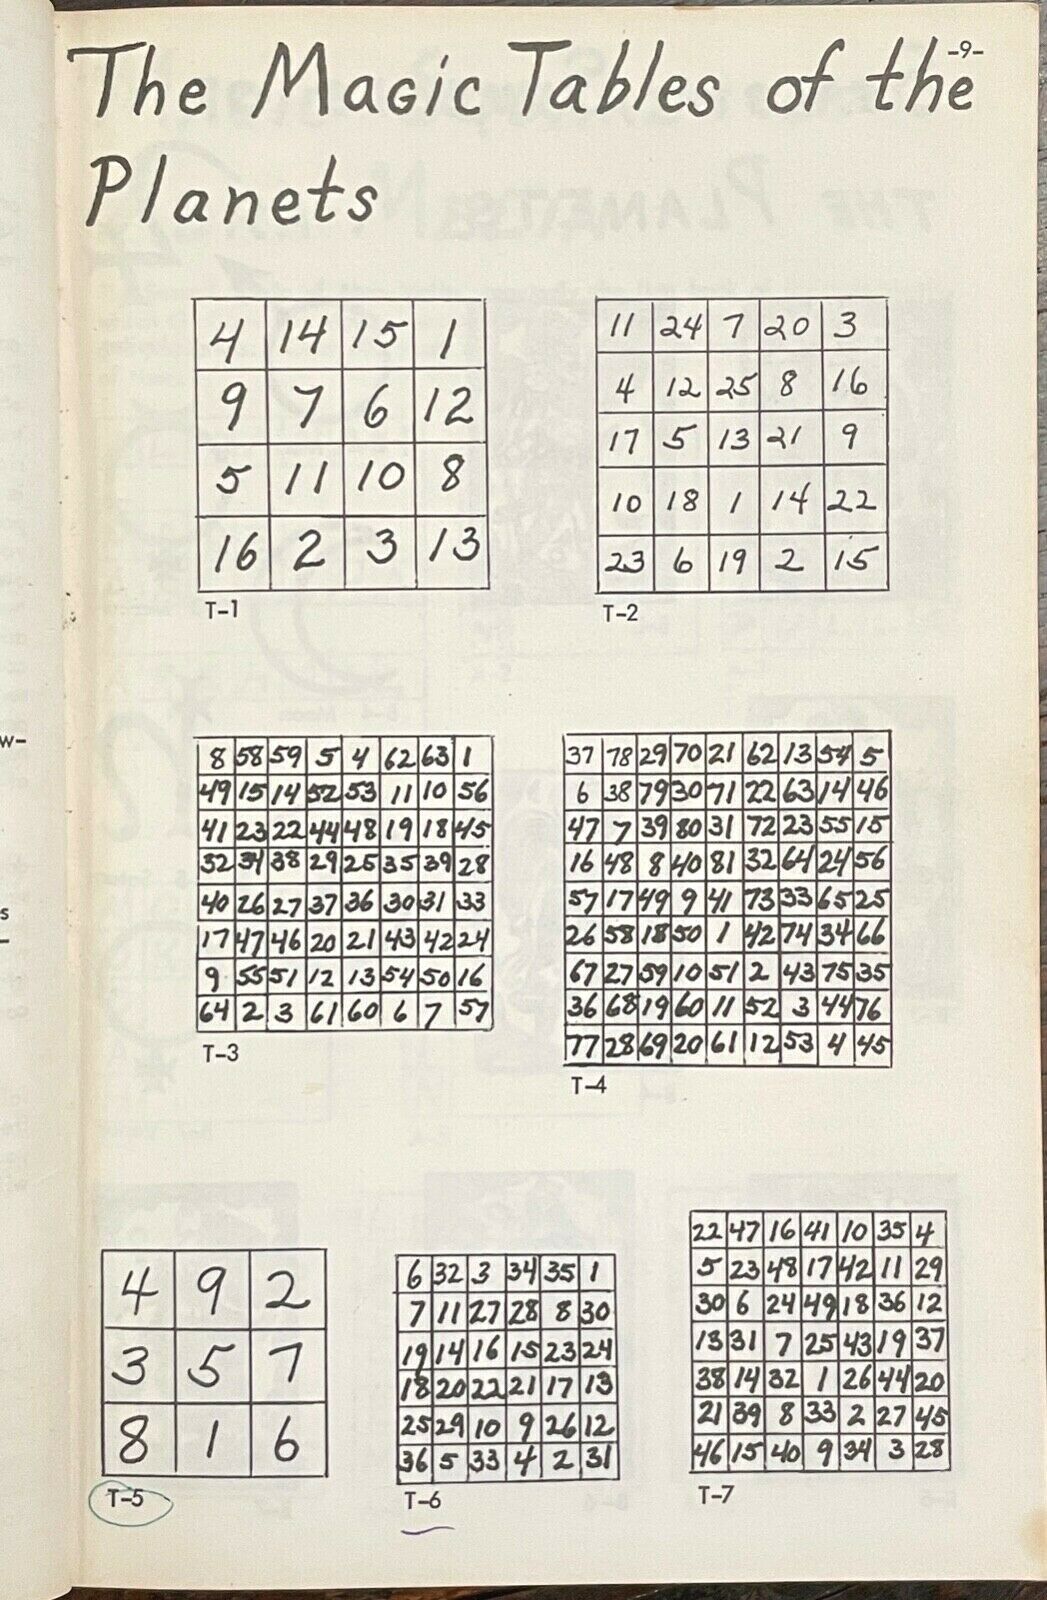 -9-
The Magic Tables of the
Planets
4 14 15 1
9 7 6 12
5 11 10 8
16 2 3 13
T-1
11 24 7 20 3
4 12 25 8 16
17 5 13 21 9
10 18 1 14 22
23 6 19 2 15
T-2
8 58 59 5 4 62 63 1
49 15 14 52 53 11 10 56
41 23 22 44 48 19 18 45
32 34 38 29 25 35 39 28
40 26 27 37 36 30 31 33
17 47 46 20 21 43 42 24
9 55 51 12 13 54 50 16
64 2 3 61 60 6 7 57
T-3
37 78 29 70 21 62 13 54 5
6 38 79 30 71 22 63 14 46
47 7 39 80 31 72 23 55 15
16 48 8 40 81 32 64 24 56
57 17 49 9 41 73 33 65 25
26 58 18 50 1 42 74 34 66
67 27 59 10 51 2 43 75 35
36 68 19 60 11 52 3 44 76
77 28 69 20 61 12 53 4 45
T-4
4 9 2
3 5 7
8 1 6
T-5
6 32 3 34 35 1
7 11 27 28 8 30
19 14 16 15 23 24
18 20 22 21 17 13
25 29 10 9 26 12
36 5 33 4 2 31
T-6
22 47 16 41 10 35 4
5 23 48 17 42 11 29
30 6 24 49 18 36 12
13 31 7 25 43 19 37
38 14 32 1 26 44 20
21 39 8 33 2 27 45
46 15 40 9 34 3 28
T-7